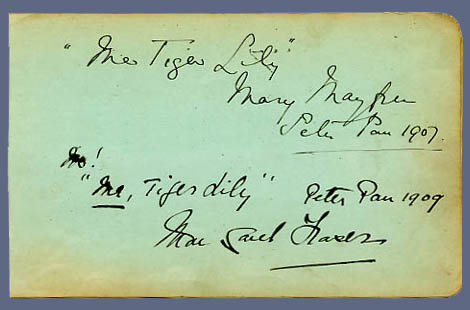 "Me Tiger Lily"
Mary Mayfren
Peter Pan 1907.
No!
"Me, Tiger Lily" Peter Pan 1909
Margaret Fraser